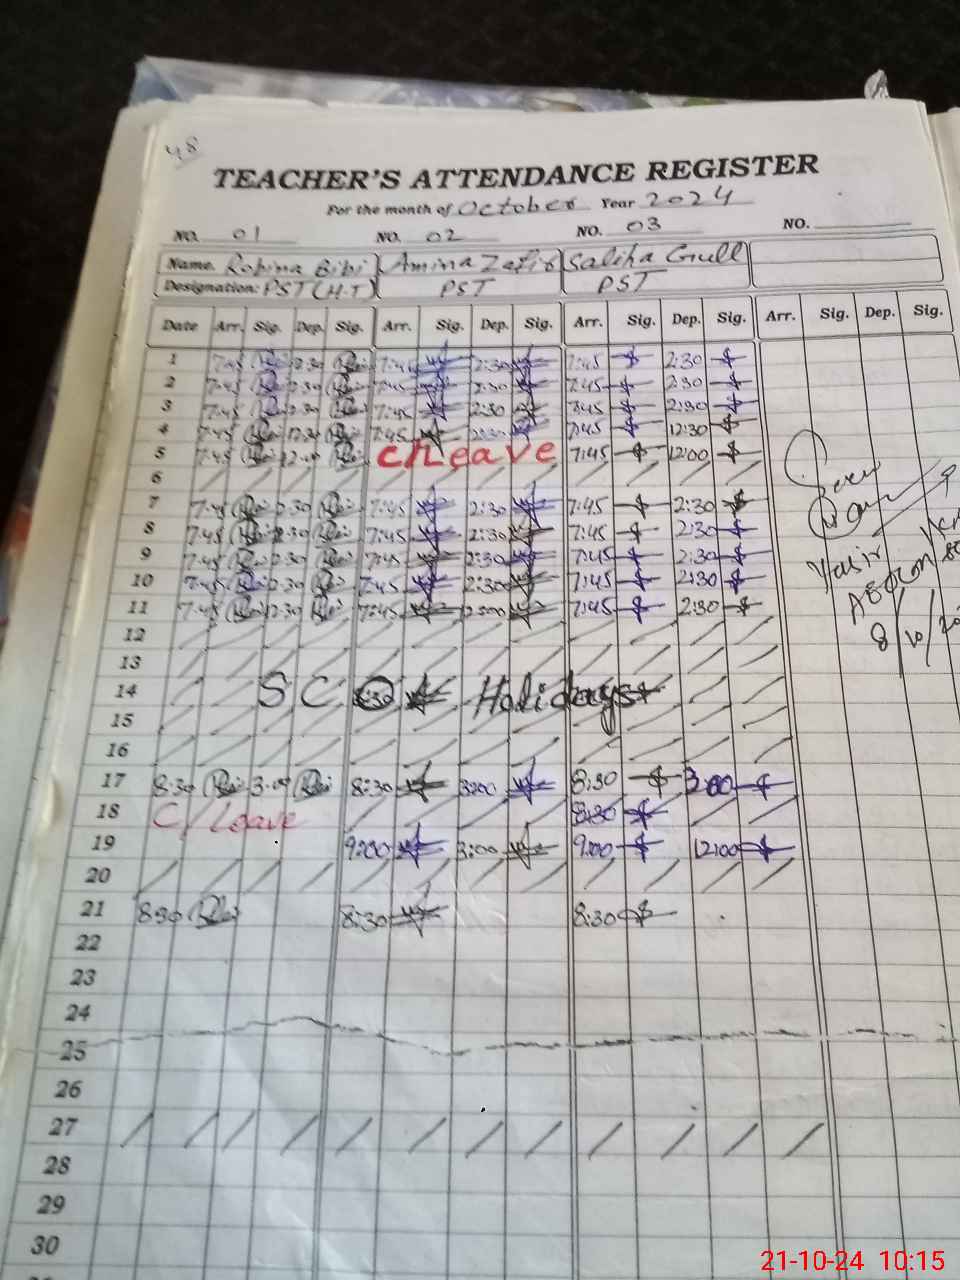 48
TEACHER'S ATTENDANCE REGISTER
For the month of October Year 2024
NO. 01 NO. 02 NO. 03 NO.
Name. Robina Bibi Amina Zafir Saliha Gull
Designation: PST (H.T) PST PST
Date Arr. Sig. Dep. Sig. Arr. Sig. Dep. Sig. Arr. Sig. Dep. Sig. Arr. Sig. Dep. Sig.
1 7:45 2:30 7:45 2:30 7:45 2:30
2 7:45 2:30 7:45 2:30 7:45 2:30
3 7:45 2:30 7:45 2:30 7:45 2:30
4 7:45 12:30 7:45 7:45 12:30
5 7:45 12:00 C/Leave 7:45 12:00
6
7 7:45 2:30 7:45 2:30 7:45 2:30
8 7:45 2:30 7:45 2:30 7:45 2:30
9 7:45 2:30 7:45 2:30 7:45 2:30
10 7:45 2:30 7:45 2:30 7:45 2:30
11 7:45 12:30 7:45 7:45 2:30
12
13
14 S C O Holidays
15
16
17 8:30 3:00 8:30 3:00 8:30 3:00
18 C/Leave 8:30
19 9:00 9:00 12:00
20
21 8:30 8:30 8:30
22
23
24
25
26
27
28
29
30
Yasir
8/10/20
21-10-24 10:15